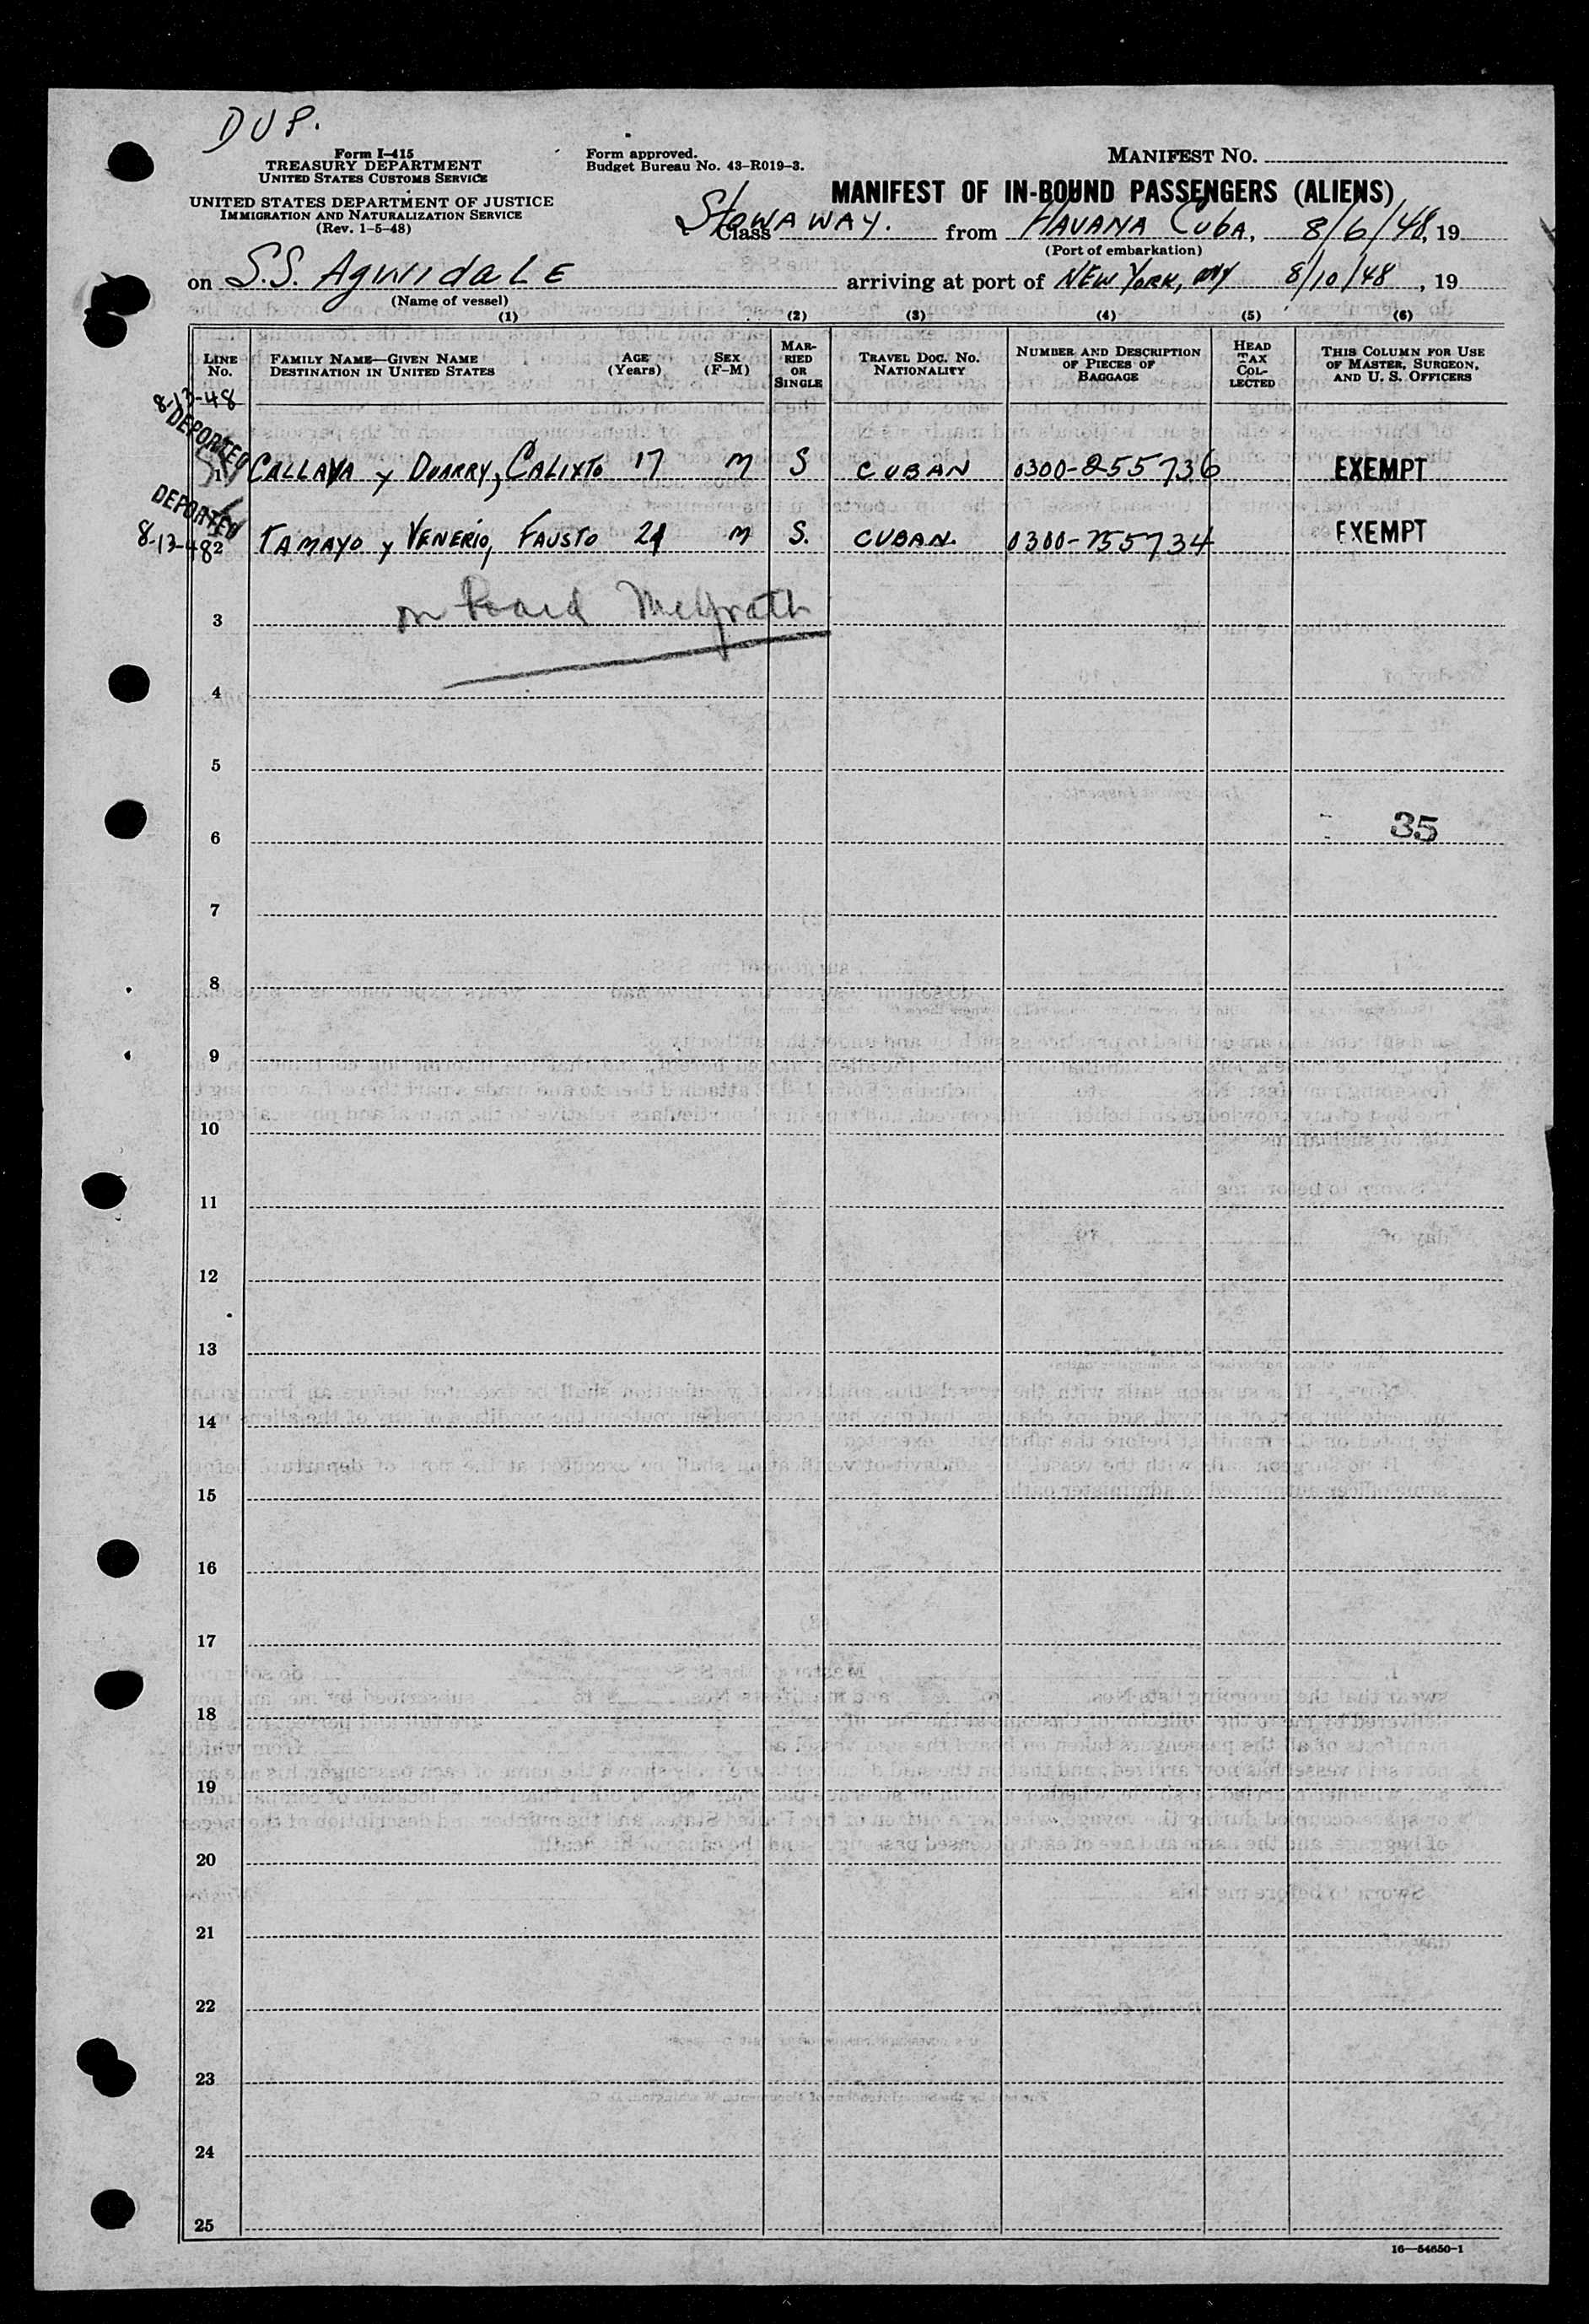 DUP.
Form I-415
TREASURY DEPARTMENT
UNITED STATES CUSTOMS SERVICE
UNITED STATES DEPARTMENT OF JUSTICE
IMMIGRATION AND NATURALIZATION SERVICE
(Rev. 1-5-48)
Form approved.
Budget Bureau No. 43-R019-3.
MANIFEST NO.
MANIFEST OF IN-BOUND PASSENGERS (ALIENS)
Class STOWAWAY. from HAVANA CUBA, 8/6/48, 19
(Port of embarkation)
on S.S. AGWIDALE arriving at port of NEW YORK, NY 8/10/48, 19
(Name of vessel)
(1) (2) (3) (4) (5) (6)
LINE NO. FAMILY NAME—GIVEN NAME DESTINATION IN UNITED STATES AGE (Years) SEX (F-M) MARRIED OR SINGLE TRAVEL DOC. NO. NATIONALITY NUMBER AND DESCRIPTION OF PIECES OF BAGGAGE HEAD TAX COLLECTED THIS COLUMN FOR USE OF MASTER, SURGEON, AND U. S. OFFICERS
8-13-48
DEPORTED
1 CALLAVA y DUARRY, CALIXTO 17 M S CUBAN 0300-255736 EXEMPT
DEPORTED
8-13-48
2 TAMAYO y VENERIO, FAUSTO 21 M S. CUBAN. 0300-255734 EXEMPT
3 on board McGrath
4
5
6 35
7
8
9
10
11
12
13
14
15
16
17
18
19
20
21
22
23
24
25
16—54650-1